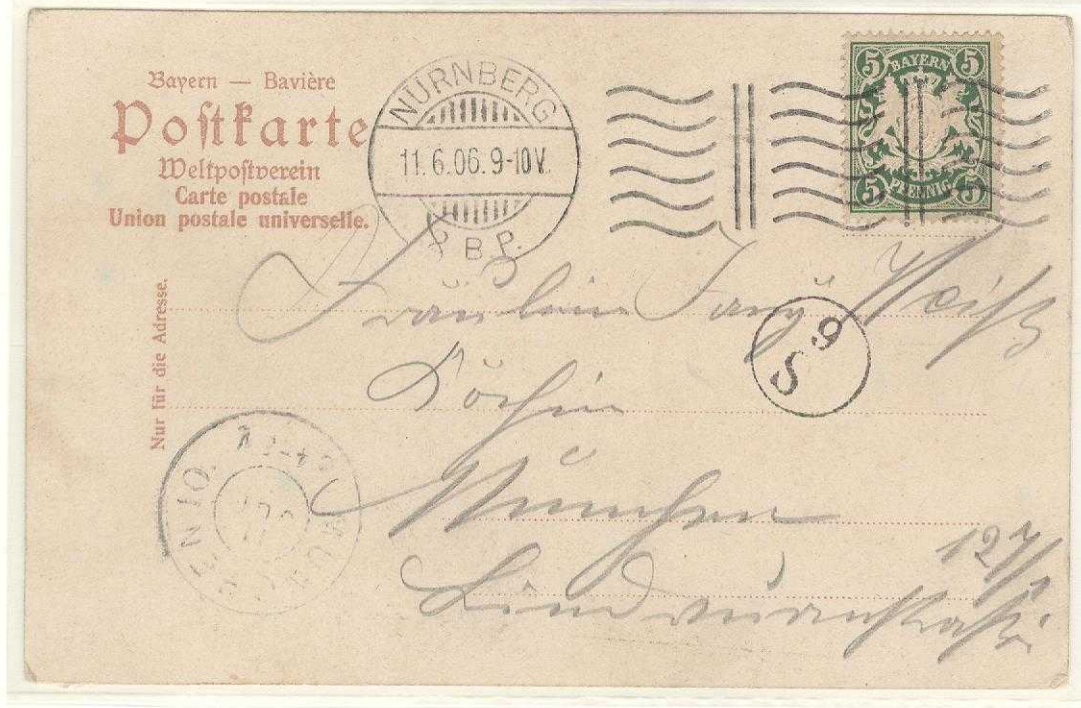 Bayern — Bavière
Postkarte
Weltpostverein
Carte postale
Union postale universelle.
NÜRNBERG
11.6.06.9-10V.
P.B.P.
5 BAYERN 5
5 PFENNIG 5
Nur für die Adresse.
Fräulein Fany Weiß
S 9
Köchin
München
127/
Lindwurmstraße